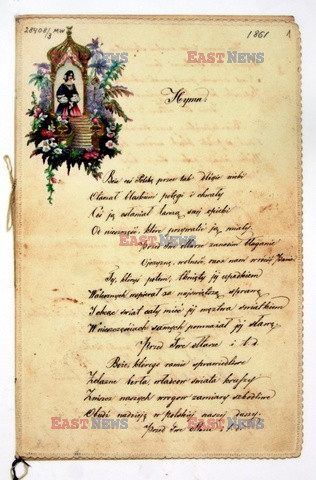 28408/3 MW
1861
1
Hymn
Boże coś Polskę przez tak długie wieki
Otaczał blaskiem potęgi i chwały
Coś ją osłaniał tarczą swej opieki
Od nieszczęść, które przywalić ją miały
Przed Twe Ołtarze zanosim błaganie
Ojczyznę, wolność, racz nam wrócić Panie
Ty, któryś potem, tknięty jej upadkiem
Walczących wspierał za najświętszą sprawę
I chcąc świat cały mieć jej męztwa świadkiem
W nieszczęściach samych pomnażał jej sławę
Przed Twe Ołtarze i t. d.
Boże, którego ramie sprawiedliwe
Żelazne berła władców świata kruszy
Zniszcz naszych wrogów zamiary szkodliwe
Obudź nadzieję w polskiej naszej duszy
Przed Twe
EAST NEWS
EAST NEWS
EAST NEWS
EAST NEWS
EAST NEWS
EAST NEWS
EAST NEWS